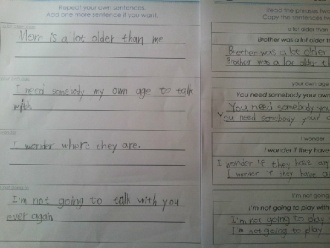 Repeat your own sentences.
Add one more sentence if you want.
Here is a lot older than me
I need somebody my own age to talk
with.
I wonder where they are.
I'm not going to talk with you
ever again
Read the phrase
Copy the sentences
a lot older than
Brother was a lot older
Brother was a lot older
Brother was a lot older
your own age
You need somebody your own
You need somebody you
You need somebody your o
I wonder
I wonder if they have
I wonder if they has an
I wonder if they have a
I'm not going
I'm not going to play with
I'm not going to play
I'm not going to play